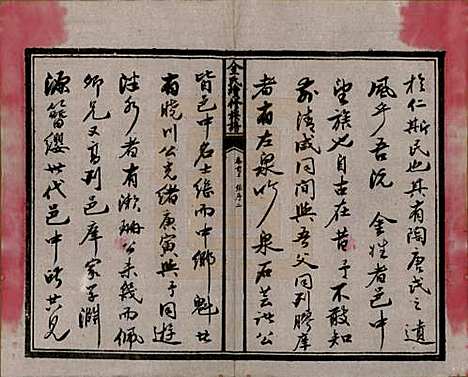 於仁斯民也其有陶唐氏之遺
風乎吾沅金姓者邑中
望族也自古在昔予不敢知
前清咸同間與吾父同列膠庠
者有左泉竹泉石芸諸公
金氏續修族譜
卷首 序二
皆邑中名士繼而中鄉魁者
有曉川公光緒庚寅與予同遊
泮水者有漱珊公未幾而佩
卿兄又高列邑庠家學淵
源簪纓世代邑中所共見